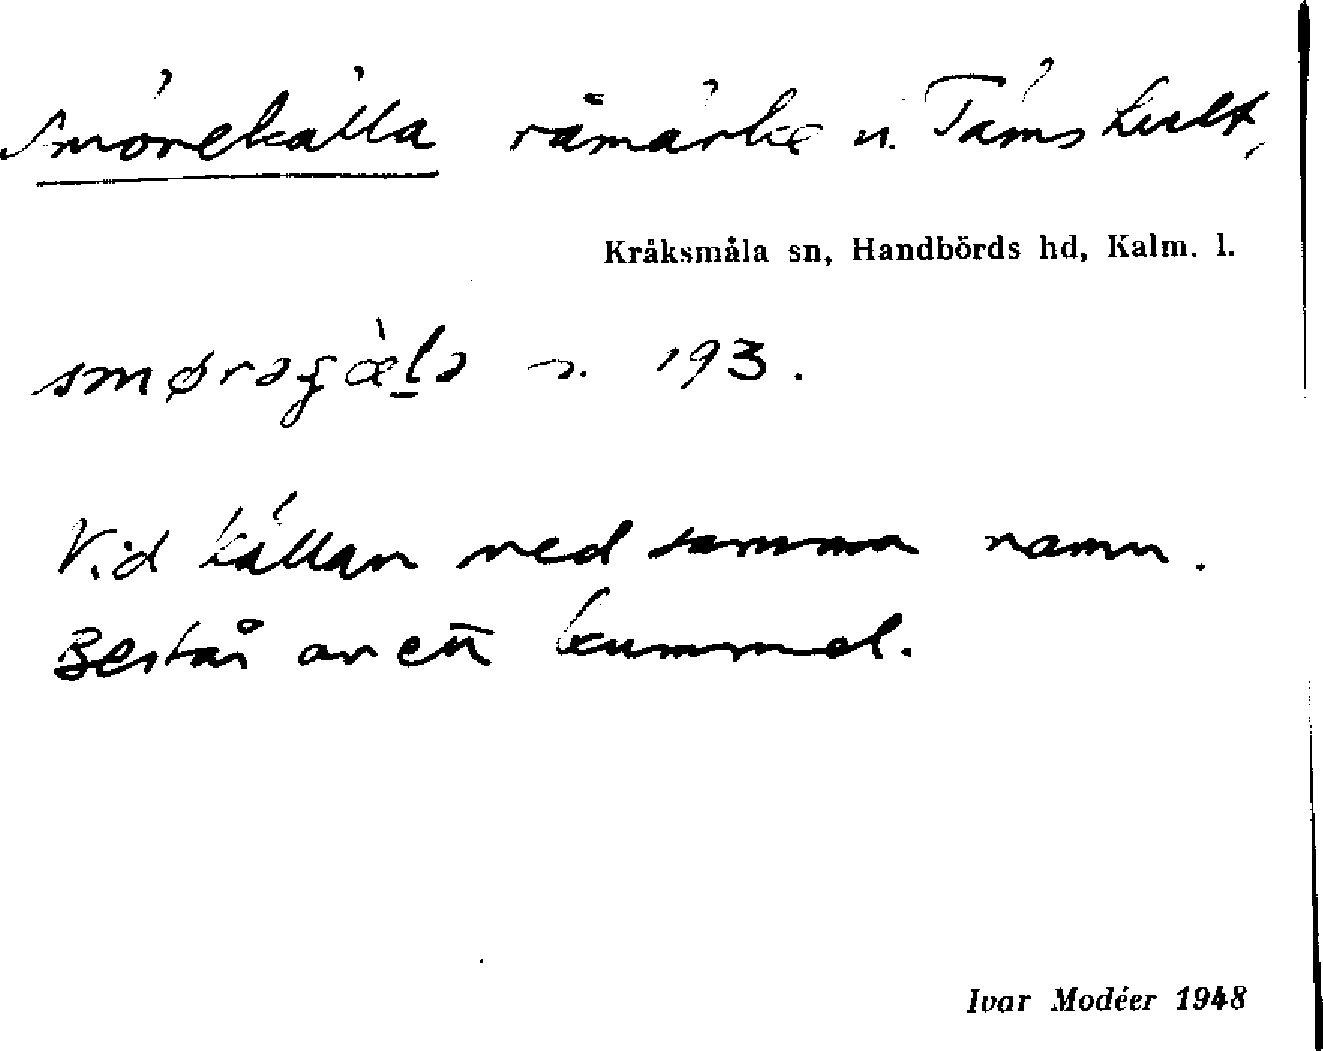 Smörekälla råmärke u. Tämshult,
Kråksmåla sn, Handbörds hd, Kalm. l.
193.
Vid källan med samma namn.
Består av ett kummel.
Ivar Modéer 1948